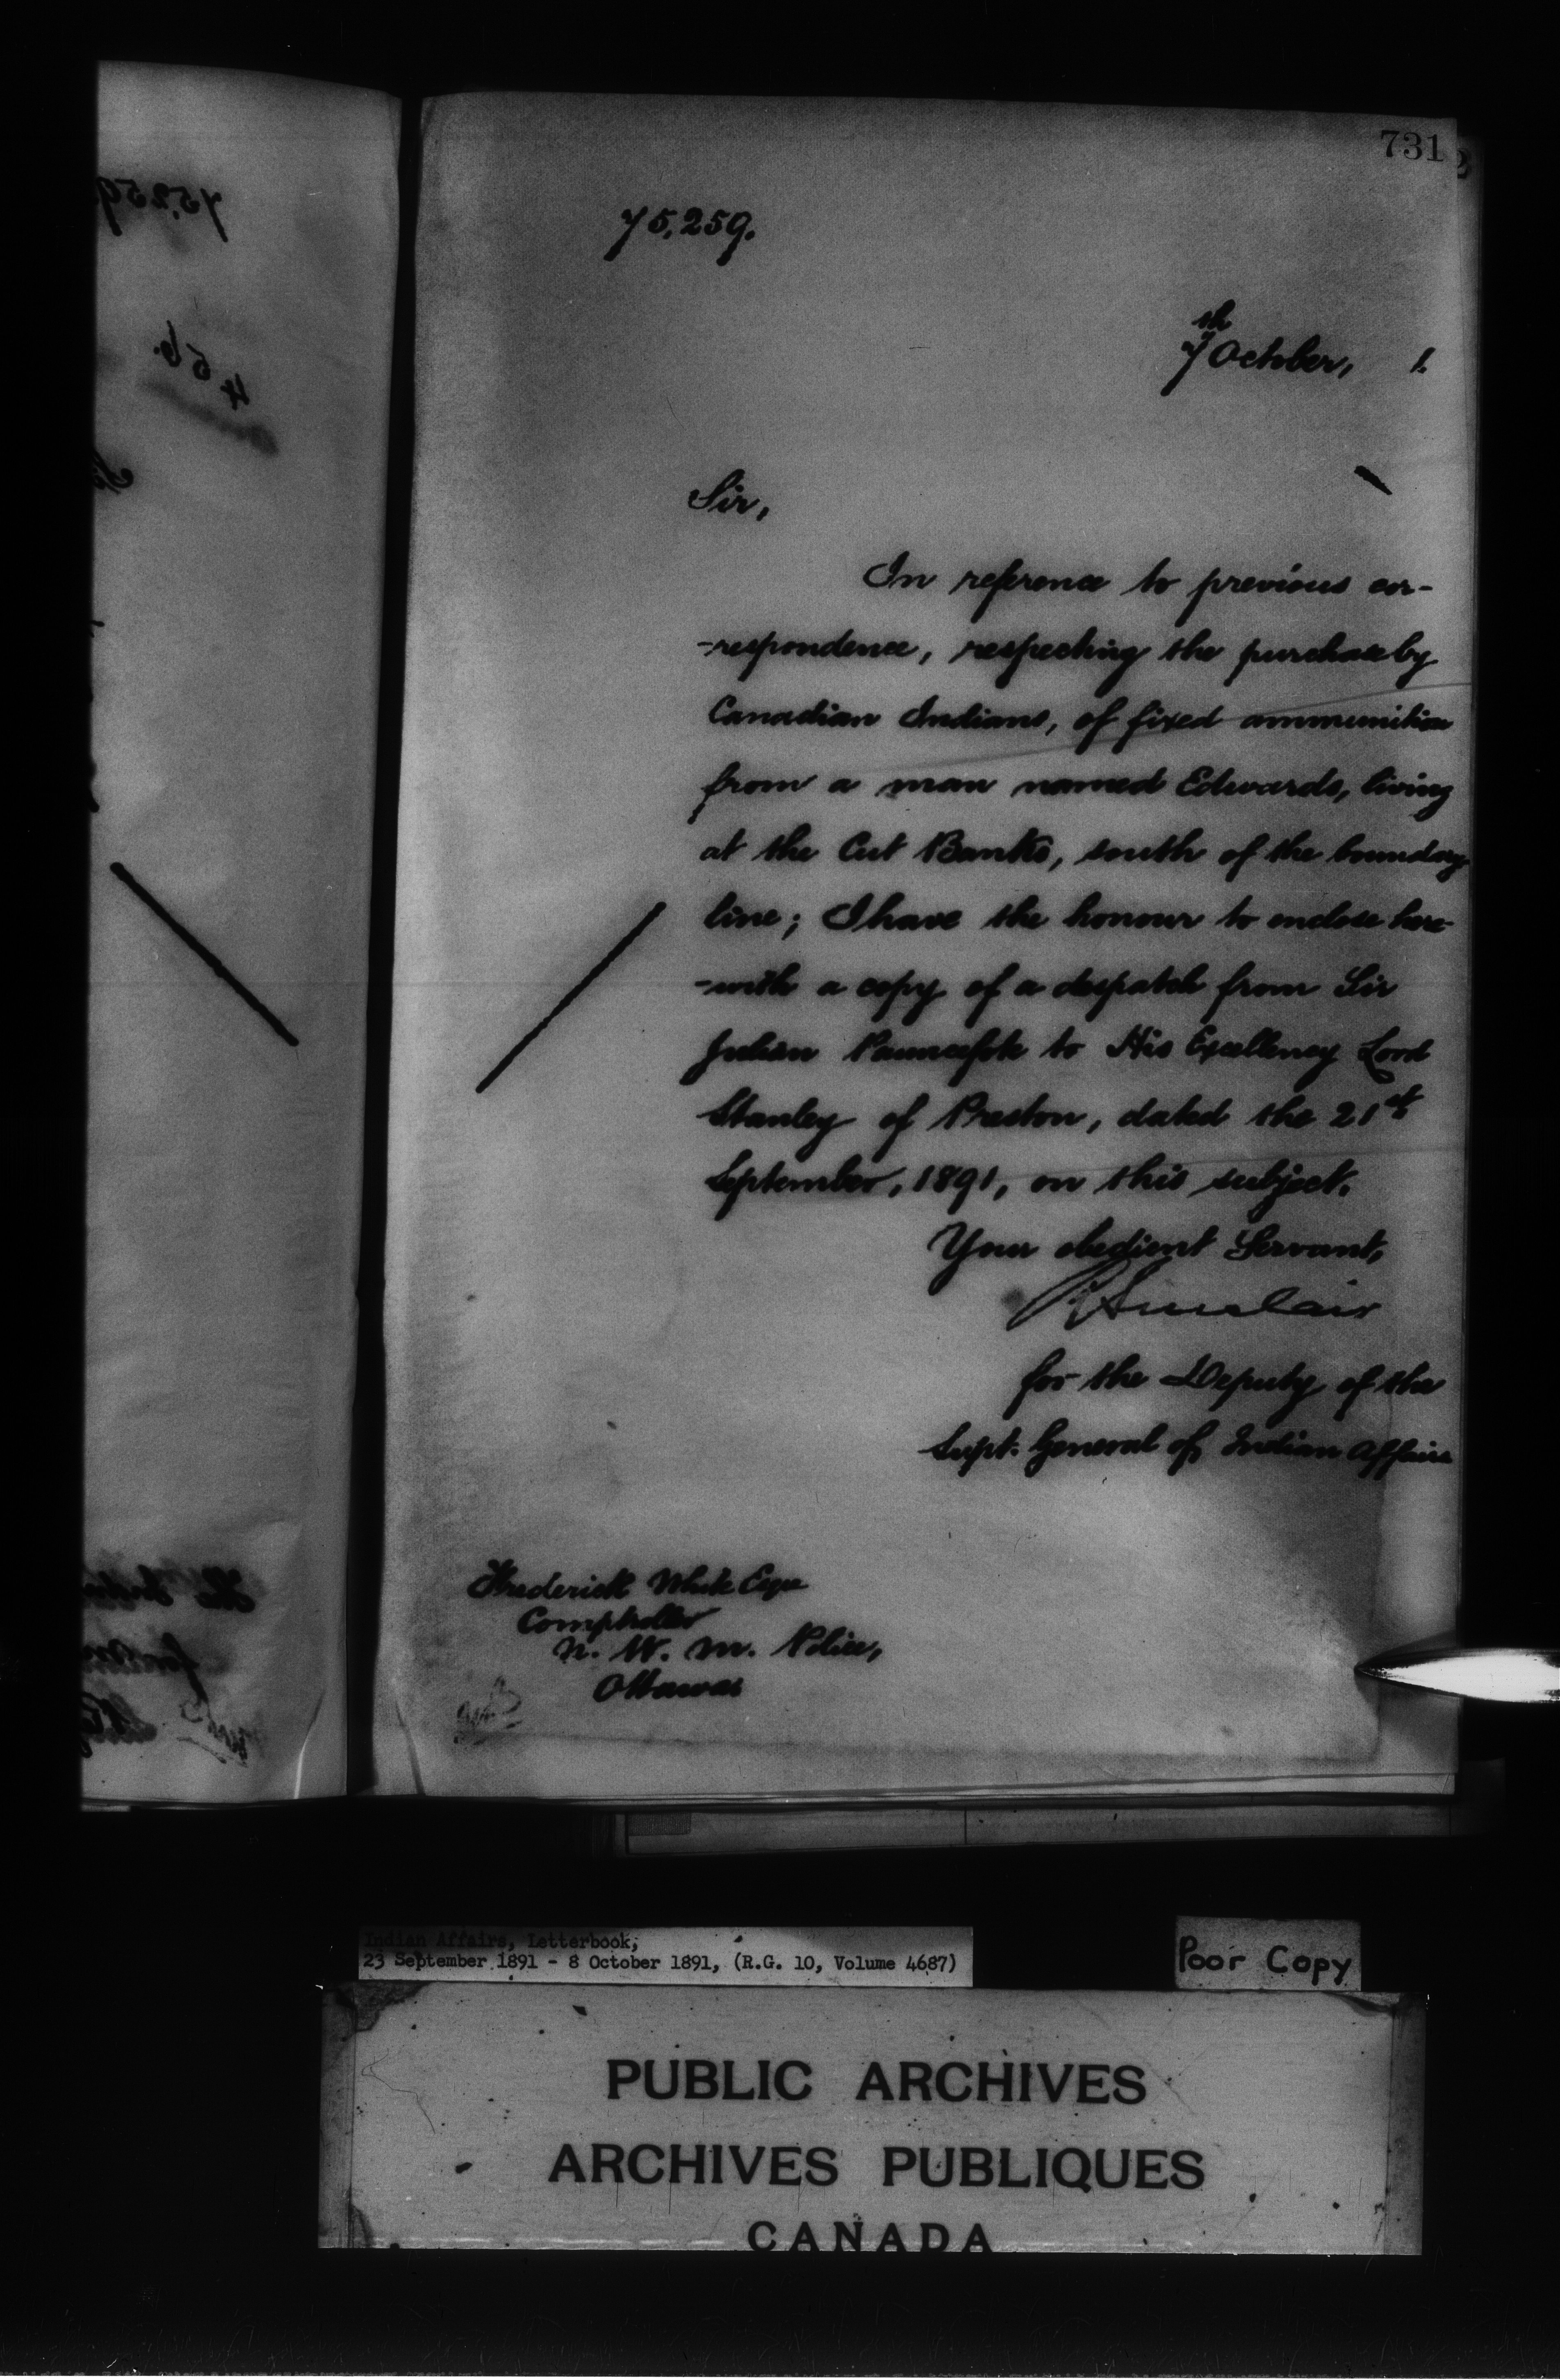 731
75,259.
7th October, 1.
Sir,
In reference to previous cor-
-respondence, respecting the purchase by
Canadian Indians, of fixed ammunition
from a man named Edwards, living
at the Cut Banks, south of the boundary
line; I have the honour to enclose here-
-with a copy of a despatch from Sir
Julian Pauncefote to His Excellency Lord
Stanley of Preston, dated the 21st
September, 1891, on this subject.
Your obedient Servant,
Sinclair
for the Deputy of the
Supt. General of Indian Affairs
Frederick White Esqre
Comptroller
N. W. M. Police,
Ottawa
Indian Affairs, Letterbook,
23 September 1891 - 8 October 1891, (R.G. 10, Volume 4687)
Poor Copy
PUBLIC ARCHIVES
ARCHIVES PUBLIQUES
CANADA